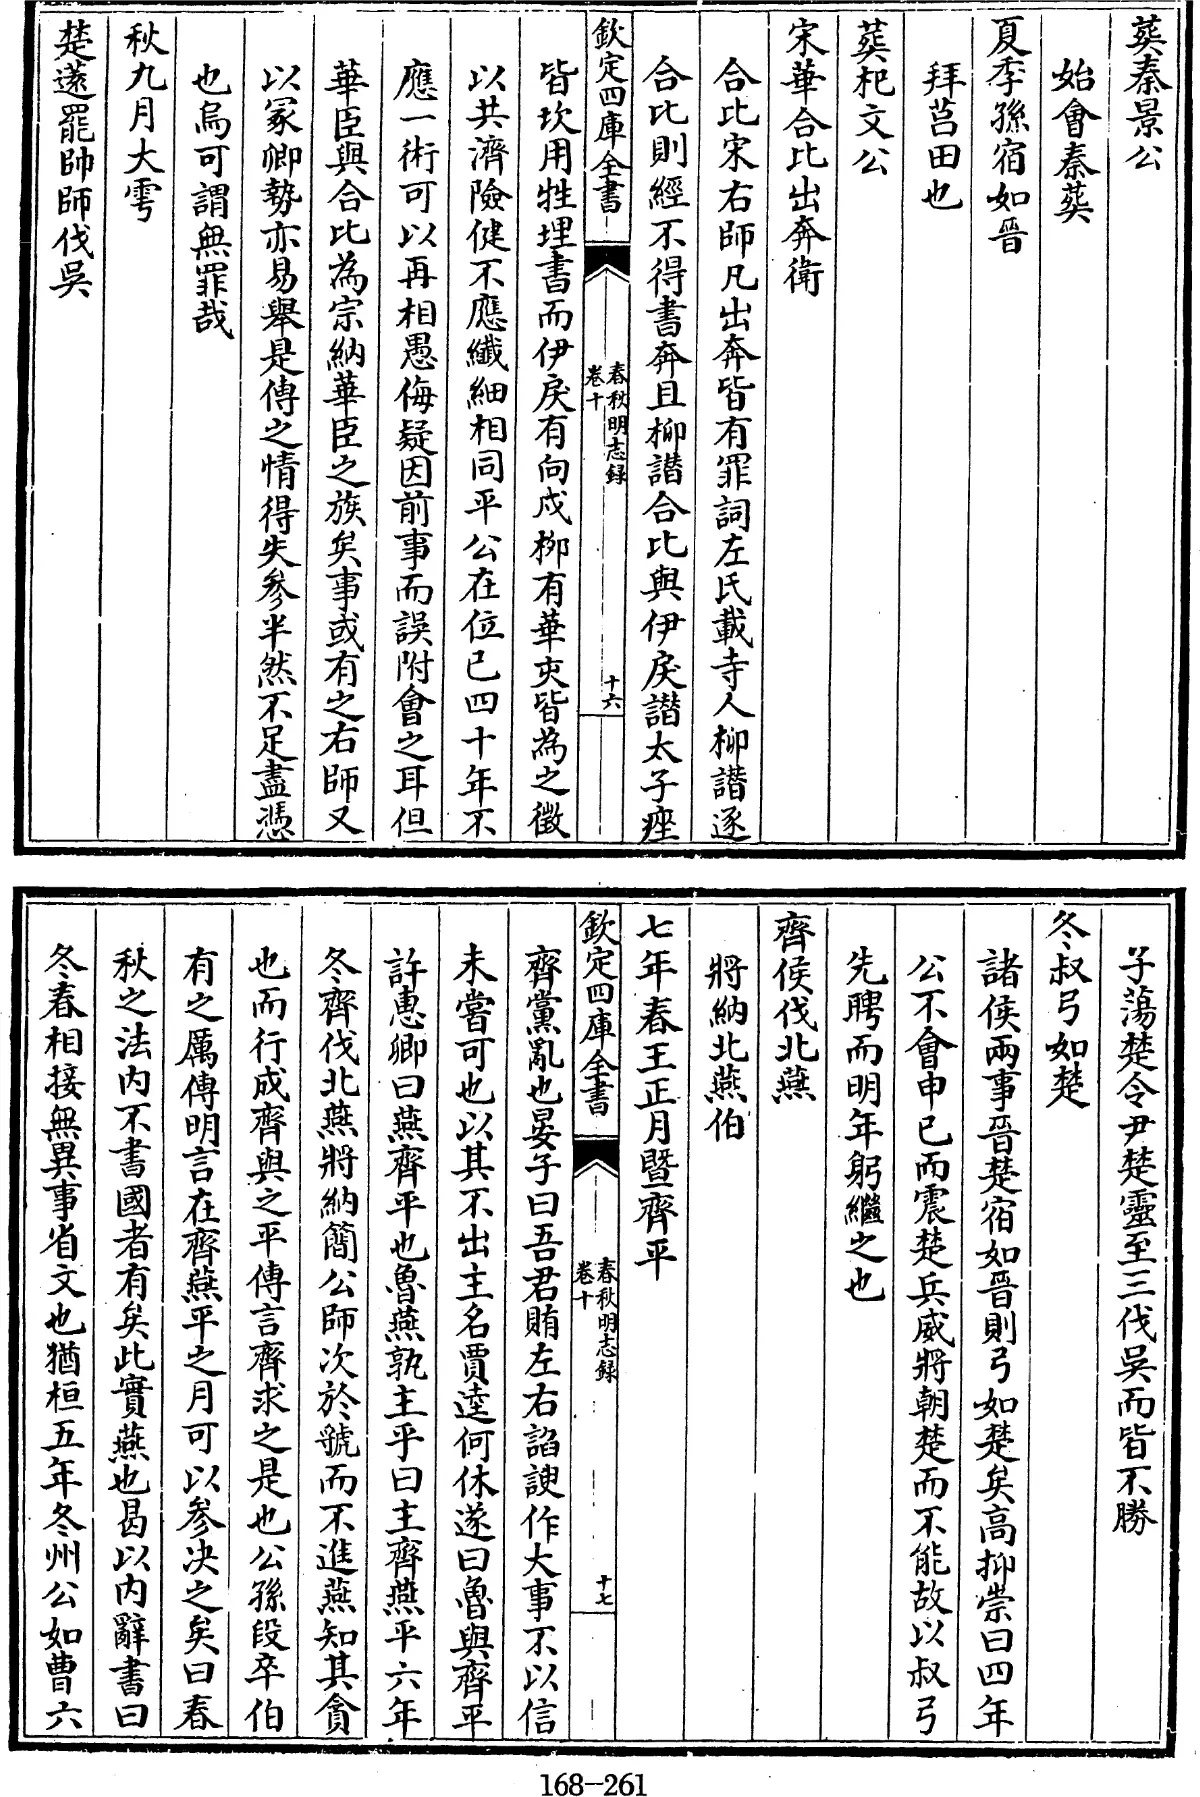 葬秦景公
始會秦葬
夏季孫宿如晉
拜莒田也
葬杞文公
宋華合比出奔衛
合比宋右師凡出奔皆有罪詞左氏載寺人柳譖逐
合比則經不得書奔且柳譖合比與伊戾譖太子痤
欽定四庫全書
春秋明志錄
卷十
十六
皆坎用牲埋書而伊戾有向戌柳有華亥皆為之徵
以共濟險健不應纖細相同平公在位已四十年不
應一術可以再相愚侮疑因前事而誤附會之耳但
華臣與合比為宗納華臣之族矣事或有之右師又
以冢卿勢亦易舉是傳之情得失參半然不足盡憑
也烏可謂無罪哉
秋九月大雩
楚薳罷帥師伐吳
子蕩楚令尹楚靈至三伐吳而皆不勝
冬叔弓如楚
諸侯兩事晉楚宿如晉則弓如楚矣高抑崇曰四年
公不會申已而震楚兵威將朝楚而不能故以叔弓
先聘而明年躬繼之也
齊侯伐北燕
將納北燕伯
七年春王正月暨齊平
欽定四庫全書
春秋明志錄
卷十
十七
齊黨亂也晏子曰吾君賄左右諂諛作大事不以信
未嘗可也以其不出主名賈逵何休遂曰魯與齊平
許惠卿曰燕齊平也魯燕孰主乎曰主齊燕平六年
冬齊伐北燕將納簡公師次於虢而不進燕知其貪
也而行成齊與之平傳言齊求之是也公孫段卒伯
有之厲傳明言在齊燕平之月可以參決之矣曰春
秋之法內不書國者有矣此實燕也曷以內辭書曰
冬春相接無異事省文也猶桓五年冬州公如曹六
168--261